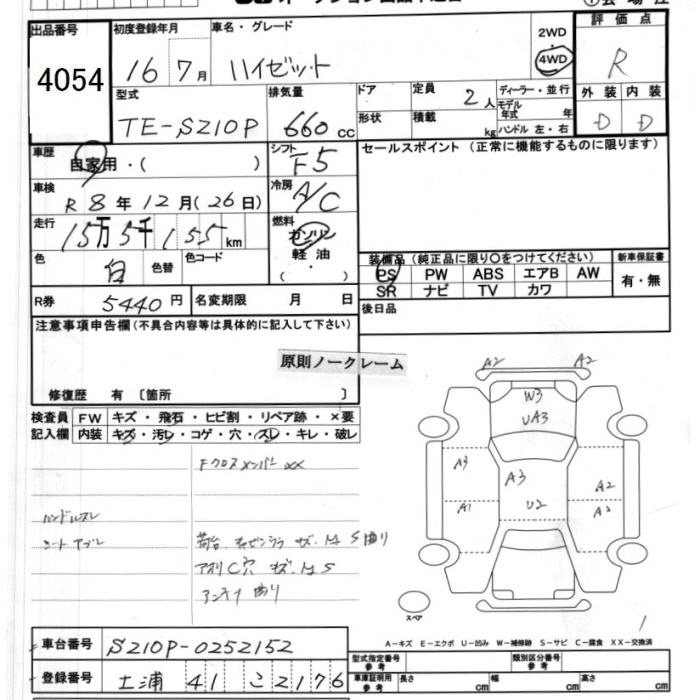 出品番号 初度登録年月 車名・グレード 2WD 4WD 評価点
4054 16 7月 ハイゼット R
型式 排気量 ドア 定員 2人 ディーラー・並行 外装 内装
TE-S210P 660cc 形状 積載 kg モデル年式 年 ハンドル 左・右 D D
車歴 自家用・( ) シフト F5 セールスポイント (正常に機能するものに限ります)
車検 R 8年 12月(26日) 冷房 A/C
走行 15万5千155km 燃料 ガソリン 軽油・( )
色 白 色替 色コード
装備品(純正品に限り○をつけてください) 新車保証書
PS PW ABS エアB AW 有・無
SR ナビ TV カワ
R券 5440円 名変期限 月 日 後日品
注意事項申告欄(不具合内容等は具体的に記入して下さい)
原則ノークレーム
修復歴 有 〔箇所 〕
検査員記入欄 FW キズ・飛石・ヒビ割・リペア跡・×要
内装 キズ・汚レ・コゲ・穴・スレ・キレ・破レ
Fクロスメンバー XX
ハンドルスレ
シートヤブレ
S曲り
アオリC穴 キズ.
曲り
A2 A2
W3
UA3
A3 A3 A2
A1 U2 A2
スペア
1
A-キズ E-エクボ U-凹み W-補修跡 S-サビ C-腐食 XX-交換済
車台番号 S210P-0252152
登録番号 土浦 41 こ 2176
型式指定番号 参考 類別区分番号 参考
車庫証明用 参考 長さ cm 幅 cm 高さ cm